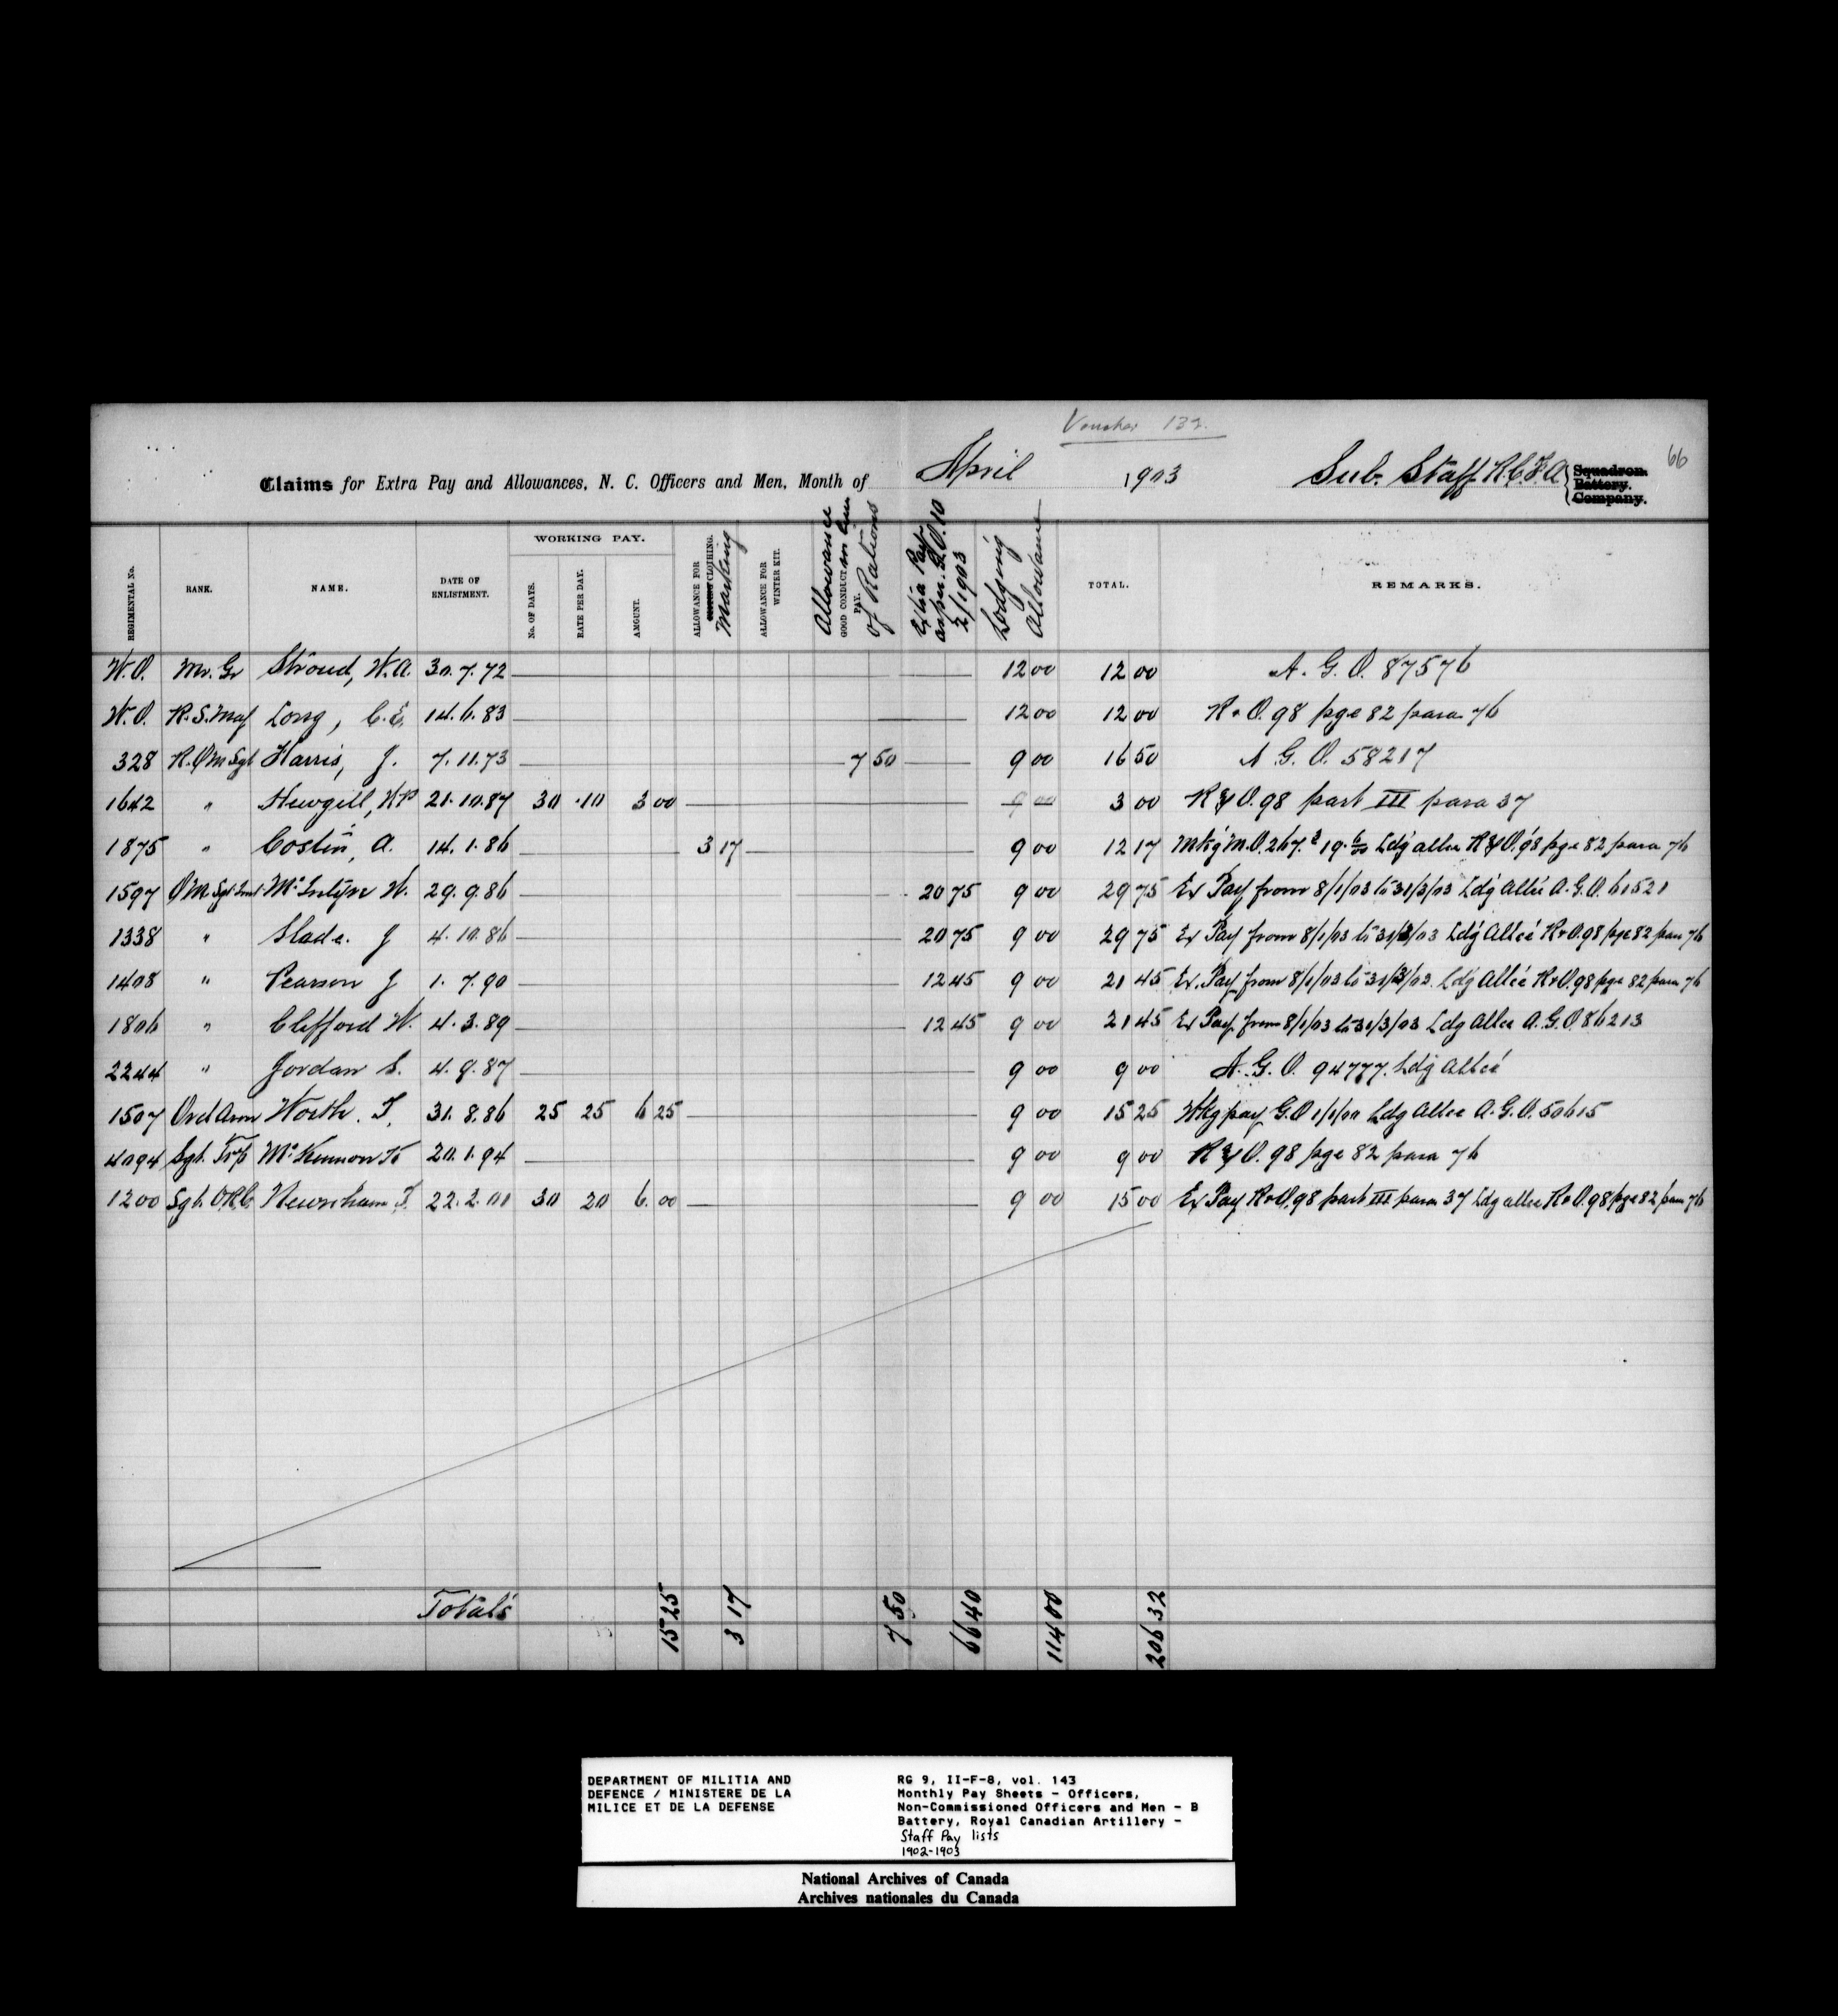 Voucher 132.
66
Claims for Extra Pay and Allowances, N. C. Officers and Men, Month of April 1903 Sub. Staff R.C.F.A. Squadron. Battery. Company.
REGIMENTAL No. RANK. NAME. DATE OF ENLISTMENT. WORKING PAY. No. OF DAYS. RATE PER DAY. AMOUNT. ALLOWANCE FOR CLOTHING. Marking ALLOWANCE FOR WINTER KIT. Allowance GOOD CONDUCT PAY. in lieu of Rations Extra Pay as per G.O. 10 2/1903 Lodging Allowance TOTAL. REMARKS.
W.O. Mr. Gr Stroud, W.A. 30.7.72 12 00 12 00 A. G. O. 87576
W.O. R.S.Maj Long, C.E. 14.6.83 12 00 12 00 R & O. 98 pge 82 para 76
328 R.Q M Sgt Harris, J. 7.11.73 7 50 9 00 16 50 A. G. O. 58217
1642 " Hewgill, 21.10.87 30 .10 3 00 9 00 3 00 R & O. 98 part III para 37
1875 " Costin, A. 14.1.86 3 17 9 00 12 17 Mkg M.O. 267. 19. Ldg allce R & O. 98 pge 82 para 76
1597 Q M Sgt Inst McIntyre W. 29.9.86 20 75 9 00 29 75 Ex Pay from 8/1/03 to 31/3/03 Ldg Allce A.G.O. 61521
1338 " Slade. J 4.10.86 20 75 9 00 29 75 Ex Pay from 8/1/03 to 31/3/03 Ldg Allce R & O. 98 pge 82 para 76
1408 " Pearson J 1.7.90 12 45 9 00 21 45 Ex. Pay from 8/1/03 to 31/3/03. Ldg Allce R & O. 98 pge 82 para 76
1806 " Clifford W. 4.3.89 12 45 9 00 21 45 Ex Pay from 8/1/03 to 31/3/03 Ldg Allce A.G.O. 86213
2244 " Jordan S. 4.9.87 9 00 9 00 A. G. O. 94777. Ldg Allce
1507 Ord Arm Worth. T. 31.8.86 25 25 6 25 9 00 15 25 Wkg pay G.O 1/1/00 Ldg Allce A.G.O. 50615
4094 Sgt. Trp McKinnon 20.1.94 9 00 9 00 R & O. 98 pge 82 para 76
1200 Sgt. O.R.C. Newnham, T. 22.2.01 30 20 6.00 9 00 15 00 Ex Pay R & O. 98 part III para 37 Ldg allce R & O. 98 pge 82 para 76
Totals 15 25 3 17 7 50 66 40 114 00 206 32
DEPARTMENT OF MILITIA AND
DEFENCE / MINISTERE DE LA
MILICE ET DE LA DEFENSE
RG 9, II-F-8, vol. 143
Monthly Pay Sheets - Officers,
Non-Commissioned Officers and Men - B
Battery, Royal Canadian Artillery -
Staff Pay lists
1902-1903
National Archives of Canada
Archives nationales du Canada